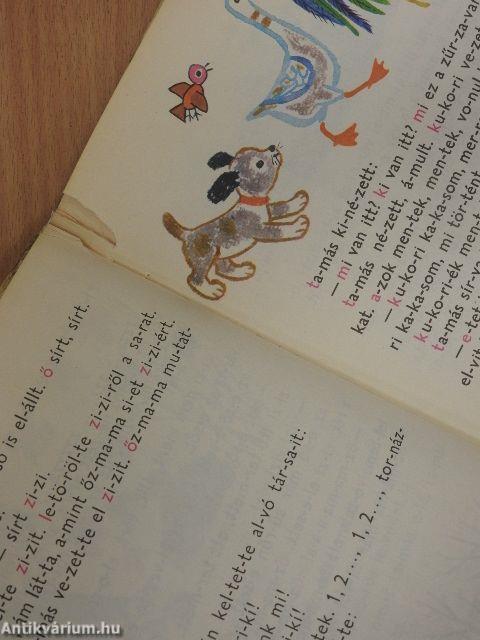 ta-más ki-né-zett:
— mi van itt? ki van itt? mi ez a zűr-za-va
ta-más né-zett, á-mult. ku-ko-ri ve-zet
kat. a-zok men-tek, men-tek, vo-nul
— ku-ko-ri ka-ka-som, mer-r
ri ka-ka-som, mi tör-tént
ku-ko-ri-ék men-t
ta-más sír-v
— e-tet
el-vit
só is el-állt. ő sírt, sírt.
— sírt zi-zi.
el-te zi-zit. le-tö-röl-te zi-zi-ről a sa-rat.
ím lát-ta, a-mint őz-ma-ma si-et zi-zi-ért.
más ve-zet-te el zi-zit. őz-ma-ma mu-tat-
n kel-tet-te al-vó tár-sa-it:
i-ki!
nk mi!
ki!
ek. 1, 2..., 1, 2..., tor-náz-
te:
Antikvárium.hu